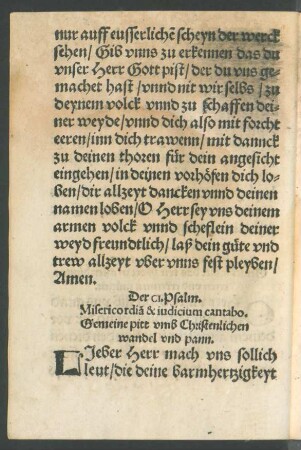 nur auff eusserlichē scheyn der werck
sehen/ Gib vnns zu erkennen das du
vnser Herr Gott pist/ der du vns ge-
machet hast/ vnnd nit wir selbs/ zu
deynem volck vnnd zu schaffen dei-
ner weyde/ vnnd dich also mit forcht
eeren/ inn dich trawenn/ mit danck
zu deinen thoren für dein angesicht
eingehen/ in deinen vorhöfen dich lo-
ben/ dir allzeyt dancken vnnd deinen
namen loben/ O Herr sey vns deinem
armen volck vnnd scheflein deiner
weyd freundtlich/ laß dein güte vnd
trew allzeyt vber vnns fest pleyben/
Amen.
Der CI. Psalm.
Misericordiā & iudicium cantabo.
Gemeine pitt vmb Christenlichen
wandel vnd pann.
LIeber Herr mach vns sollich
leut/ die deine barmhertzigkeyt